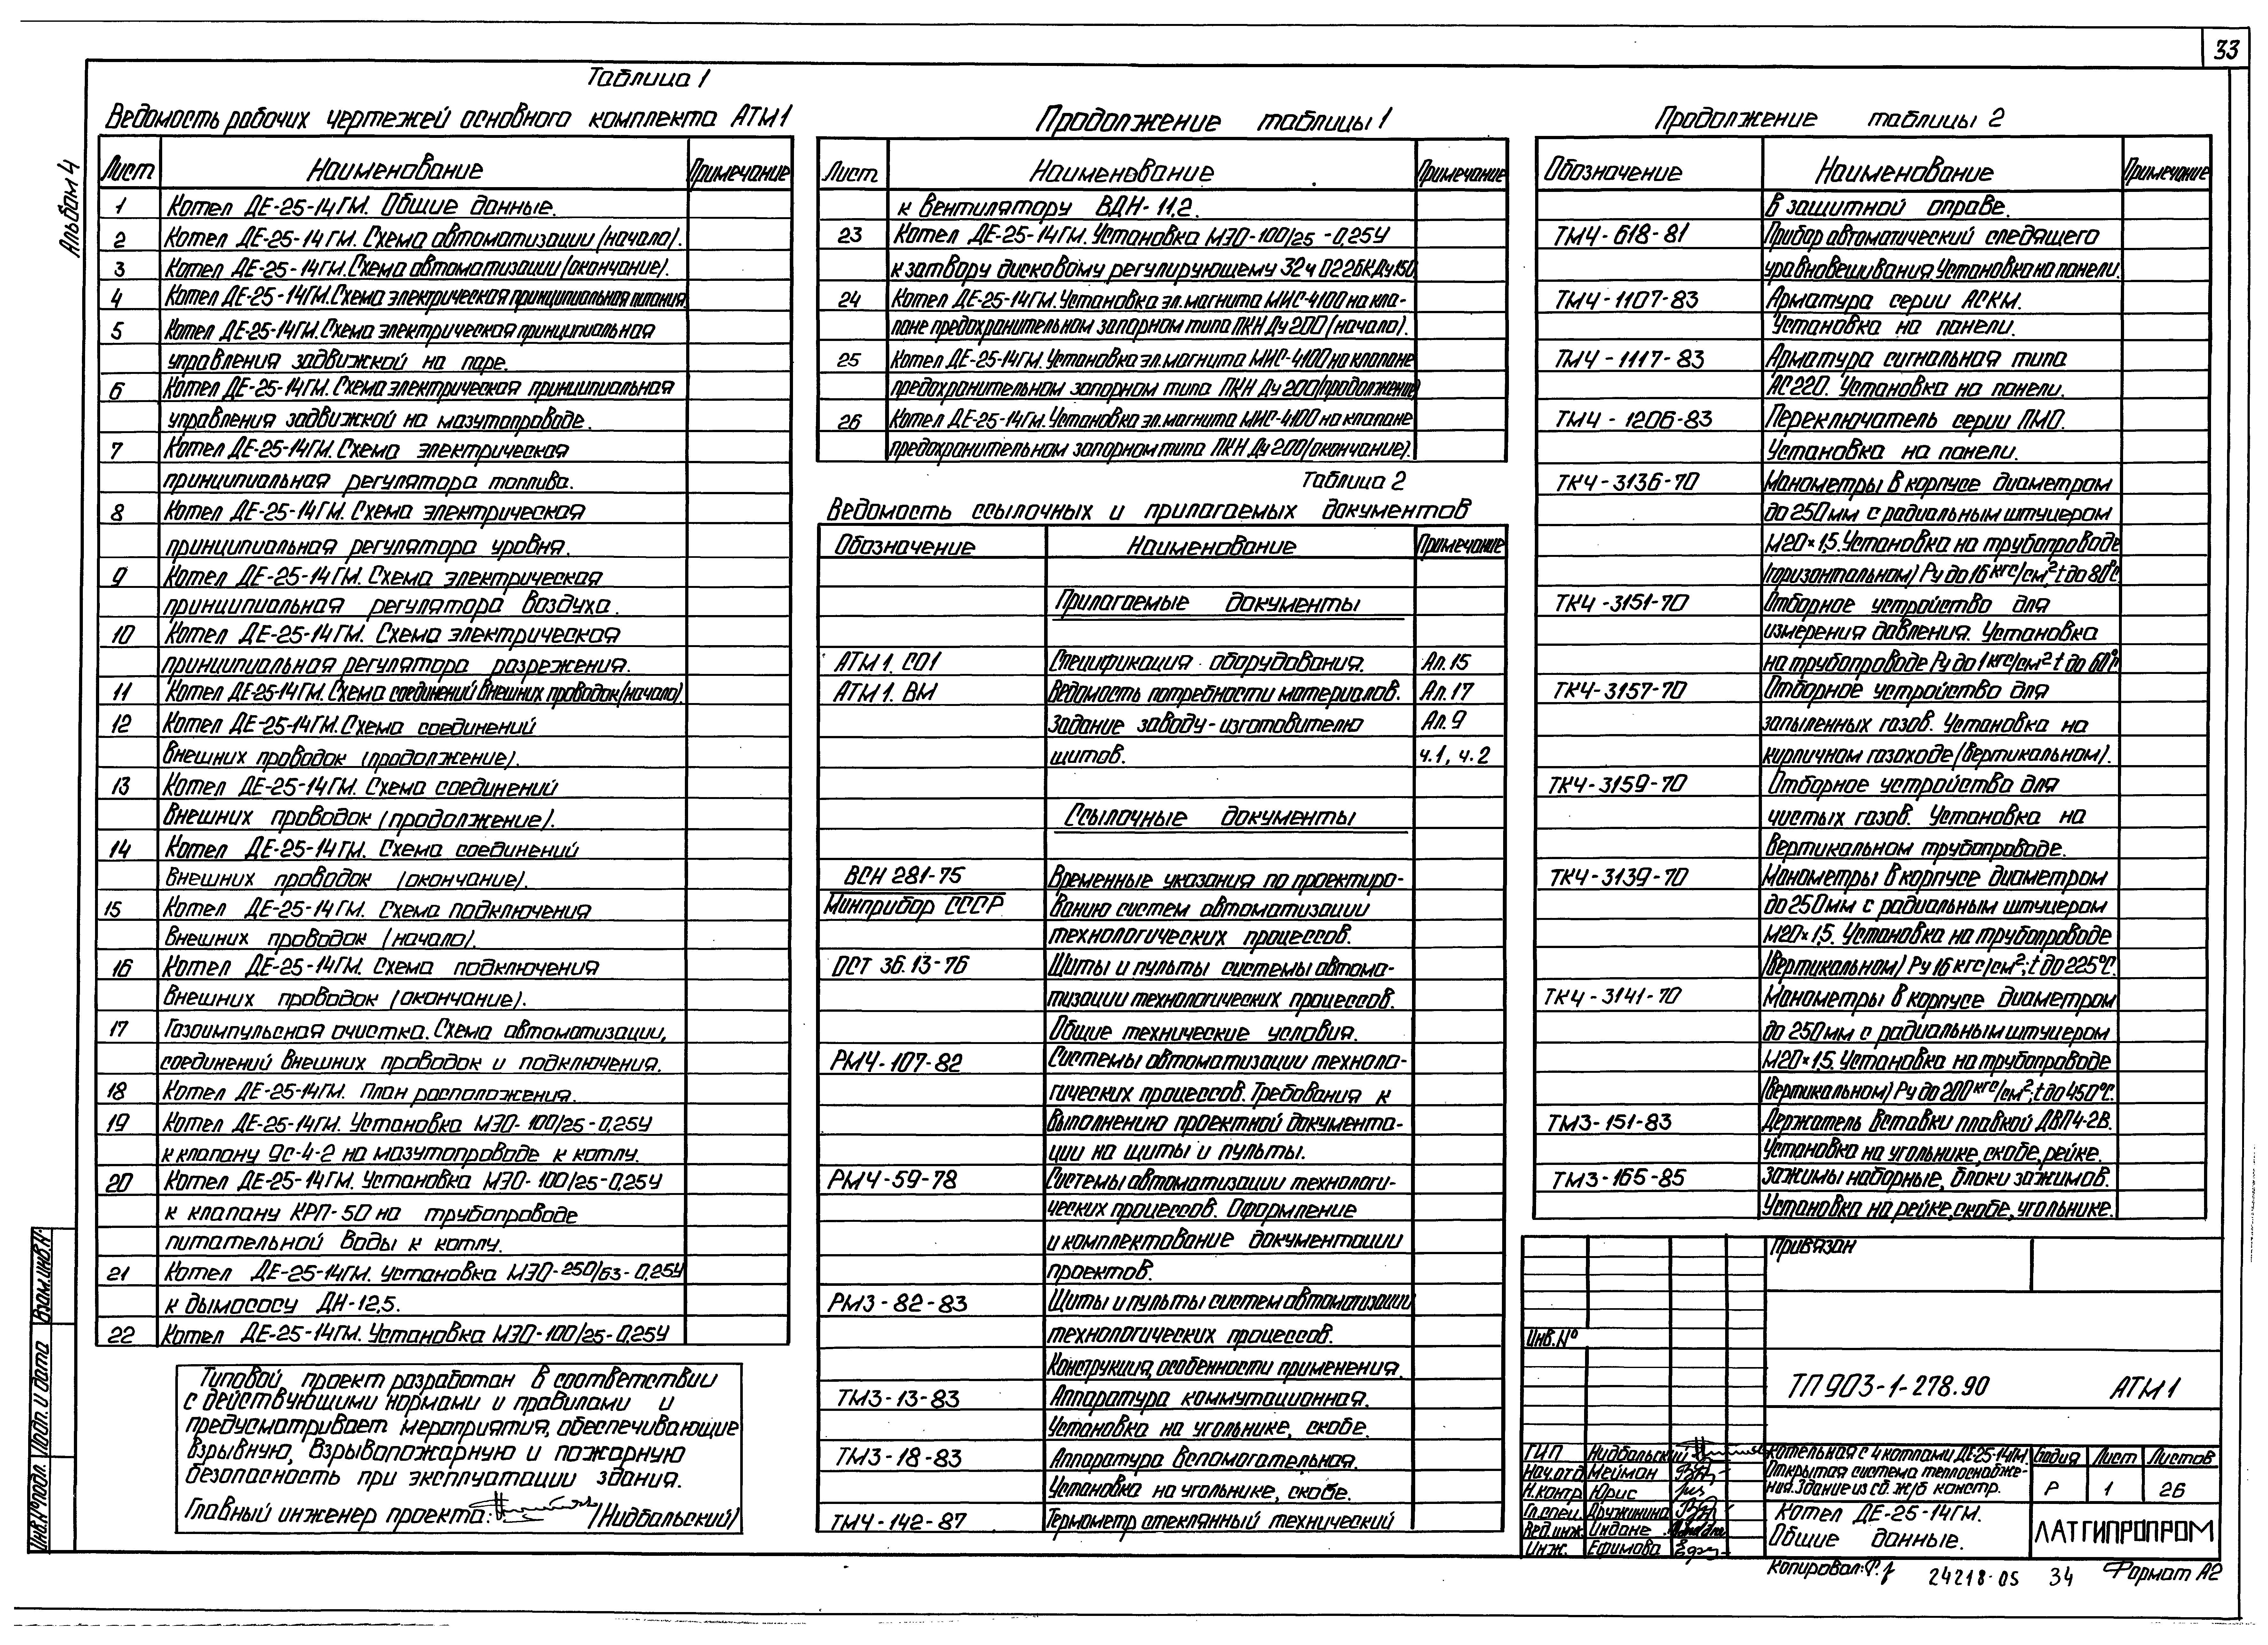 33
Альбом 4
Таблица 1
Ведомость рабочих чертежей основного комплекта АТМ1
Лист Наименование Примечание
1 Котел ДЕ-25-14ГМ. Общие данные.
2 Котел ДЕ-25-14ГМ. Схема автоматизации (начало).
3 Котел ДЕ-25-14ГМ. Схема автоматизации (окончание).
4 Котел ДЕ-25-14ГМ. Схема электрическая принципиальная питания
5 Котел ДЕ-25-14ГМ. Схема электрическая принципиальная
управления задвижкой на паре.
6 Котел ДЕ-25-14ГМ. Схема электрическая принципиальная
управления задвижкой на мазутопроводе.
7 Котел ДЕ-25-14ГМ. Схема электрическая
принципиальная регулятора топлива.
8 Котел ДЕ-25-14ГМ. Схема электрическая
принципиальная регулятора уровня.
9 Котел ДЕ-25-14ГМ. Схема электрическая
принципиальная регулятора воздуха.
10 Котел ДЕ-25-14ГМ. Схема электрическая
принципиальная регулятора разрежения.
11 Котел ДЕ-25-14ГМ. Схема соединений внешних проводок (начало).
12 Котел ДЕ-25-14ГМ. Схема соединений
внешних проводок (продолжение).
13 Котел ДЕ-25-14ГМ. Схема соединений
внешних проводок (продолжение).
14 Котел ДЕ-25-14ГМ. Схема соединений
внешних проводок (окончание).
15 Котел ДЕ-25-14ГМ. Схема подключения
внешних проводок (начало).
16 Котел ДЕ-25-14ГМ. Схема подключения
внешних проводок (окончание).
17 Газоимпульсная очистка. Схема автоматизации,
соединений внешних проводок и подключения.
18 Котел ДЕ-25-14ГМ. План расположения.
19 Котел ДЕ-25-14ГМ. Установка МЭО-100/25-0,25У
к клапану 9с-4-2 на мазутопроводе к котлу.
20 Котел ДЕ-25-14ГМ. Установка МЭО-100/25-0,25У
к клапану КРП-50 на трубопроводе
питательной воды к котлу.
21 Котел ДЕ-25-14ГМ. Установка МЭО-250/63-0,25У
к дымососу ДН-12,5.
22 Котел ДЕ-25-14ГМ. Установка МЭО-100/25-0,25У
Типовой проект разработан в соответствии
с действующими нормами и правилами и
предусматривает мероприятия, обеспечивающие
взрывную, взрывопожарную и пожарную
безопасность при эксплуатации здания.
Главный инженер проекта: /Нидбальский/
Продолжение таблицы 1
Лист Наименование Примечание
к вентилятору ВДН-11,2.
23 Котел ДЕ-25-14ГМ. Установка МЭО-100/25-0,25У
к затвору дисковому регулирующему 32ч 022бК Ду150
24 Котел ДЕ-25-14ГМ. Установка эл. магнита МИС-4100 на кла-
пане предохранительном запорном типа ПКН Ду 200 (начало).
25 Котел ДЕ-25-14ГМ. Установка эл. магнита МИС-4100 на клапане
предохранительном запорном типа ПКН Ду 200 (продолжение)
26 Котел ДЕ-25-14ГМ. Установка эл. магнита МИС-4100 на клапане
предохранительном запорном типа ПКН Ду 200 (окончание).
Таблица 2
Ведомость ссылочных и прилагаемых документов
Обозначение Наименование Примечание
Прилагаемые документы
АТМ1. СО1 Спецификация оборудования. Ал.15
АТМ1. ВМ Ведомость потребности материалов. Ал.17
Задание заводу-изготовителю Ал.9
щитов. ч.1, ч.2
Ссылочные документы
ВСН 281-75 Временные указания по проектиро-
Минприбор СССР ванию систем автоматизации
технологических процессов.
ОСТ 36.13-76 Щиты и пульты системы автома-
тизации технологических процессов.
Общие технические условия.
РМ4-107-82 Системы автоматизации техноло-
гических процессов. Требования к
выполнению проектной документа-
ции на щиты и пульты.
РМ4-59-78 Системы автоматизации технологи-
ческих процессов. Оформление
и комплектование документации
проектов.
РМ3-82-83 Щиты и пульты систем автоматизации
технологических процессов.
Конструкция, особенности применения.
ТМ3-13-83 Аппаратура коммутационная.
Установка на угольнике, скобе.
ТМ3-18-83 Аппаратура вспомогательная.
Установка на угольнике, скобе.
ТМ4-142-87 Термометр стеклянный технический
Продолжение таблицы 2
Обозначение Наименование Примечание
в защитной оправе.
ТМ4-618-81 Прибор автоматический следящего
уравновешивания. Установка на панели.
ТМ4-1107-83 Арматура серии АСКМ.
Установка на панели.
ТМ4-1117-83 Арматура сигнальная типа
АС220. Установка на панели.
ТМ4-1206-83 Переключатель серии ПМО.
Установка на панели.
ТК4-3136-70 Манометры в корпусе диаметром
до 250мм с радиальным штуцером
М20×1,5. Установка на трубопроводе
(горизонтальном) Ру до 16 кгс/см², t до 80°С
ТК4-3151-70 Отборное устройство для
измерения давления. Установка
на трубопроводе Ру до 1 кгс/см² t до 60°С
ТК4-3157-70 Отборное устройство для
запыленных газов. Установка на
кирпичном газоходе (вертикальном).
ТК4-3159-70 Отборное устройство для
чистых газов. Установка на
вертикальном трубопроводе.
ТК4-3139-70 Манометры в корпусе диаметром
до 250мм с радиальным штуцером
М20×1,5. Установка на трубопроводе
(вертикальном) Ру 16 кгс/см²; t до 225°С.
ТК4-3141-70 Манометры в корпусе диаметром
до 250мм с радиальным штуцером
М20×1,5. Установка на трубопроводе
(вертикальном) Ру до 200 кгс/см²; t до 450°С.
ТМ3-151-83 Держатель вставки плавкой ДВП4-2В.
Установка на угольнике, скобе, рейке.
ТМ3-165-85 Зажимы наборные, блоки зажимов.
Установка на рейке, скобе, угольнике.
Привязан
Инв.№
ТП 903-1-278.90 АТМ1
ГИП Нидбальский
Нач.отд Мейман
Н.контр Юрис
Гл.спец. Дружинина
Вед.инж. Индане
Инж. Ефимова
Котельная с 4 котлами ДЕ-25-14ГМ.
Открытая система теплоснабже-
ния. Здание из сб. ж/б констр.
Стадия Лист Листов
Р 1 26
Котел ДЕ-25-14ГМ.
Общие данные.
ЛАТГИПРОПРОМ
Копировал: 24218-05 34 Формат А2
Взам.инв.№
Подп. и дата
Инв.№ подл.